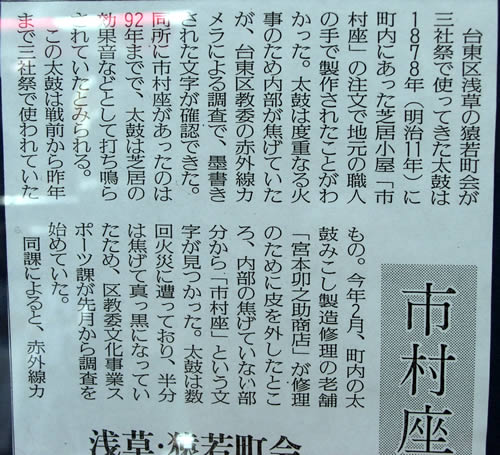 台東区浅草の猿若町会が
三社祭で使ってきた太鼓は
1878年(明治11年)に
町内にあった芝居小屋「市
村座」の注文で地元の職人
の手で製作されたことがわ
かった。太鼓は度重なる火
事のため内部が焦げていた
が、台東区教委の赤外線カ
メラによる調査で、墨書き
された文字が確認できた。
同所に市村座があったのは
92年までで、太鼓は芝居の
効果音などとして打ち鳴ら
されていたとみられる。
この太鼓は戦前から昨年
まで三社祭で使われていた
もの。今年2月、町内の太
鼓みこし製造修理の老舗
「宮本卯之助商店」が修理
のために皮を外したとこ
ろ、内部の焦げていない部
分から「市村座」という文
字が見つかった。太鼓は数
回火災に遭っており、半分
は焦げて真っ黒になってい
たため、区教委文化事業ス
ポーツ課が先月から調査を
始めていた。
同課によると、赤外線カ
市村座
浅草・猿若町会